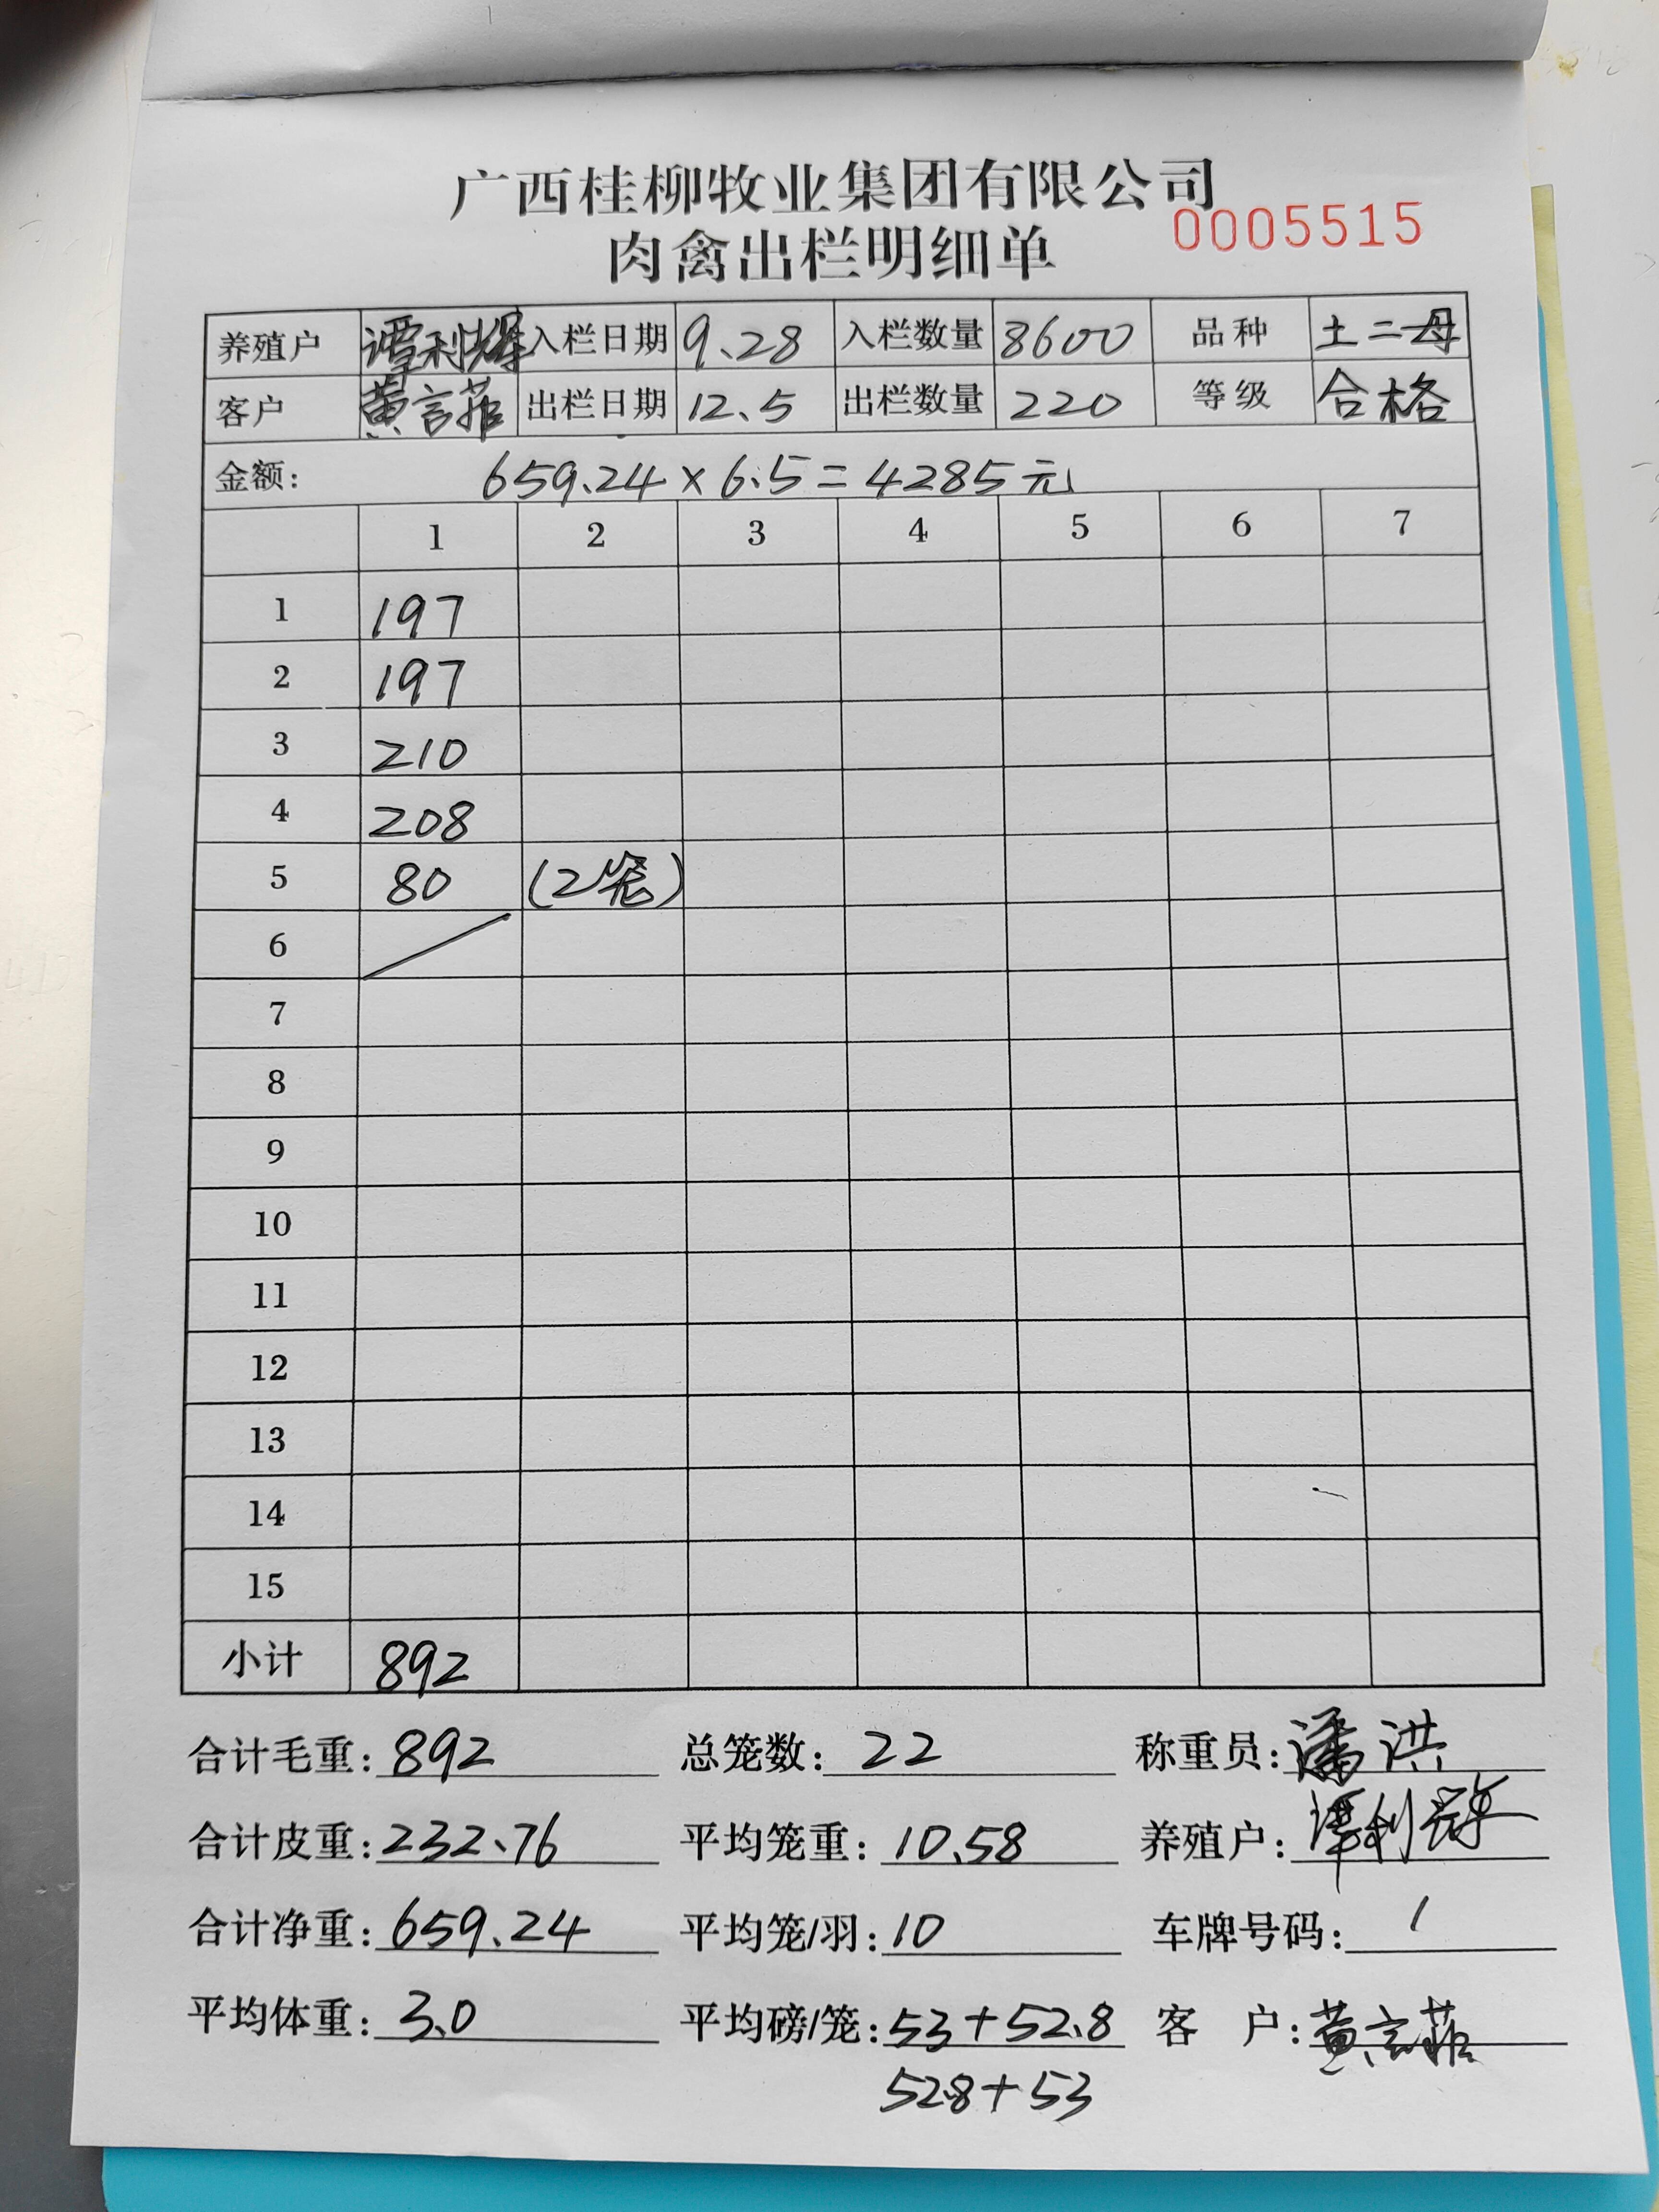 广西桂柳牧业集团有限公司
肉禽出栏明细单 0005515
养殖户 谭利辉 入栏日期 9.28 入栏数量 8600 品种 土二母
客户 黄言菲 出栏日期 12.5 出栏数量 220 等级 合格
金额: 659.24×6.5=4285元
1 2 3 4 5 6 7
1 197
2 197
3 210
4 208
5 80 (2笼)
6
7
8
9
10
11
12
13
14
15
小计 892
合计毛重: 892 总笼数: 22 称重员: 潘洪
合计皮重: 232.76 平均笼重: 10.58 养殖户: 谭利辉
合计净重: 659.24 平均笼/羽: 10 车牌号码: /
平均体重: 3.0 平均磅/笼: 53+52.8 客 户: 黄言菲
52.8+53